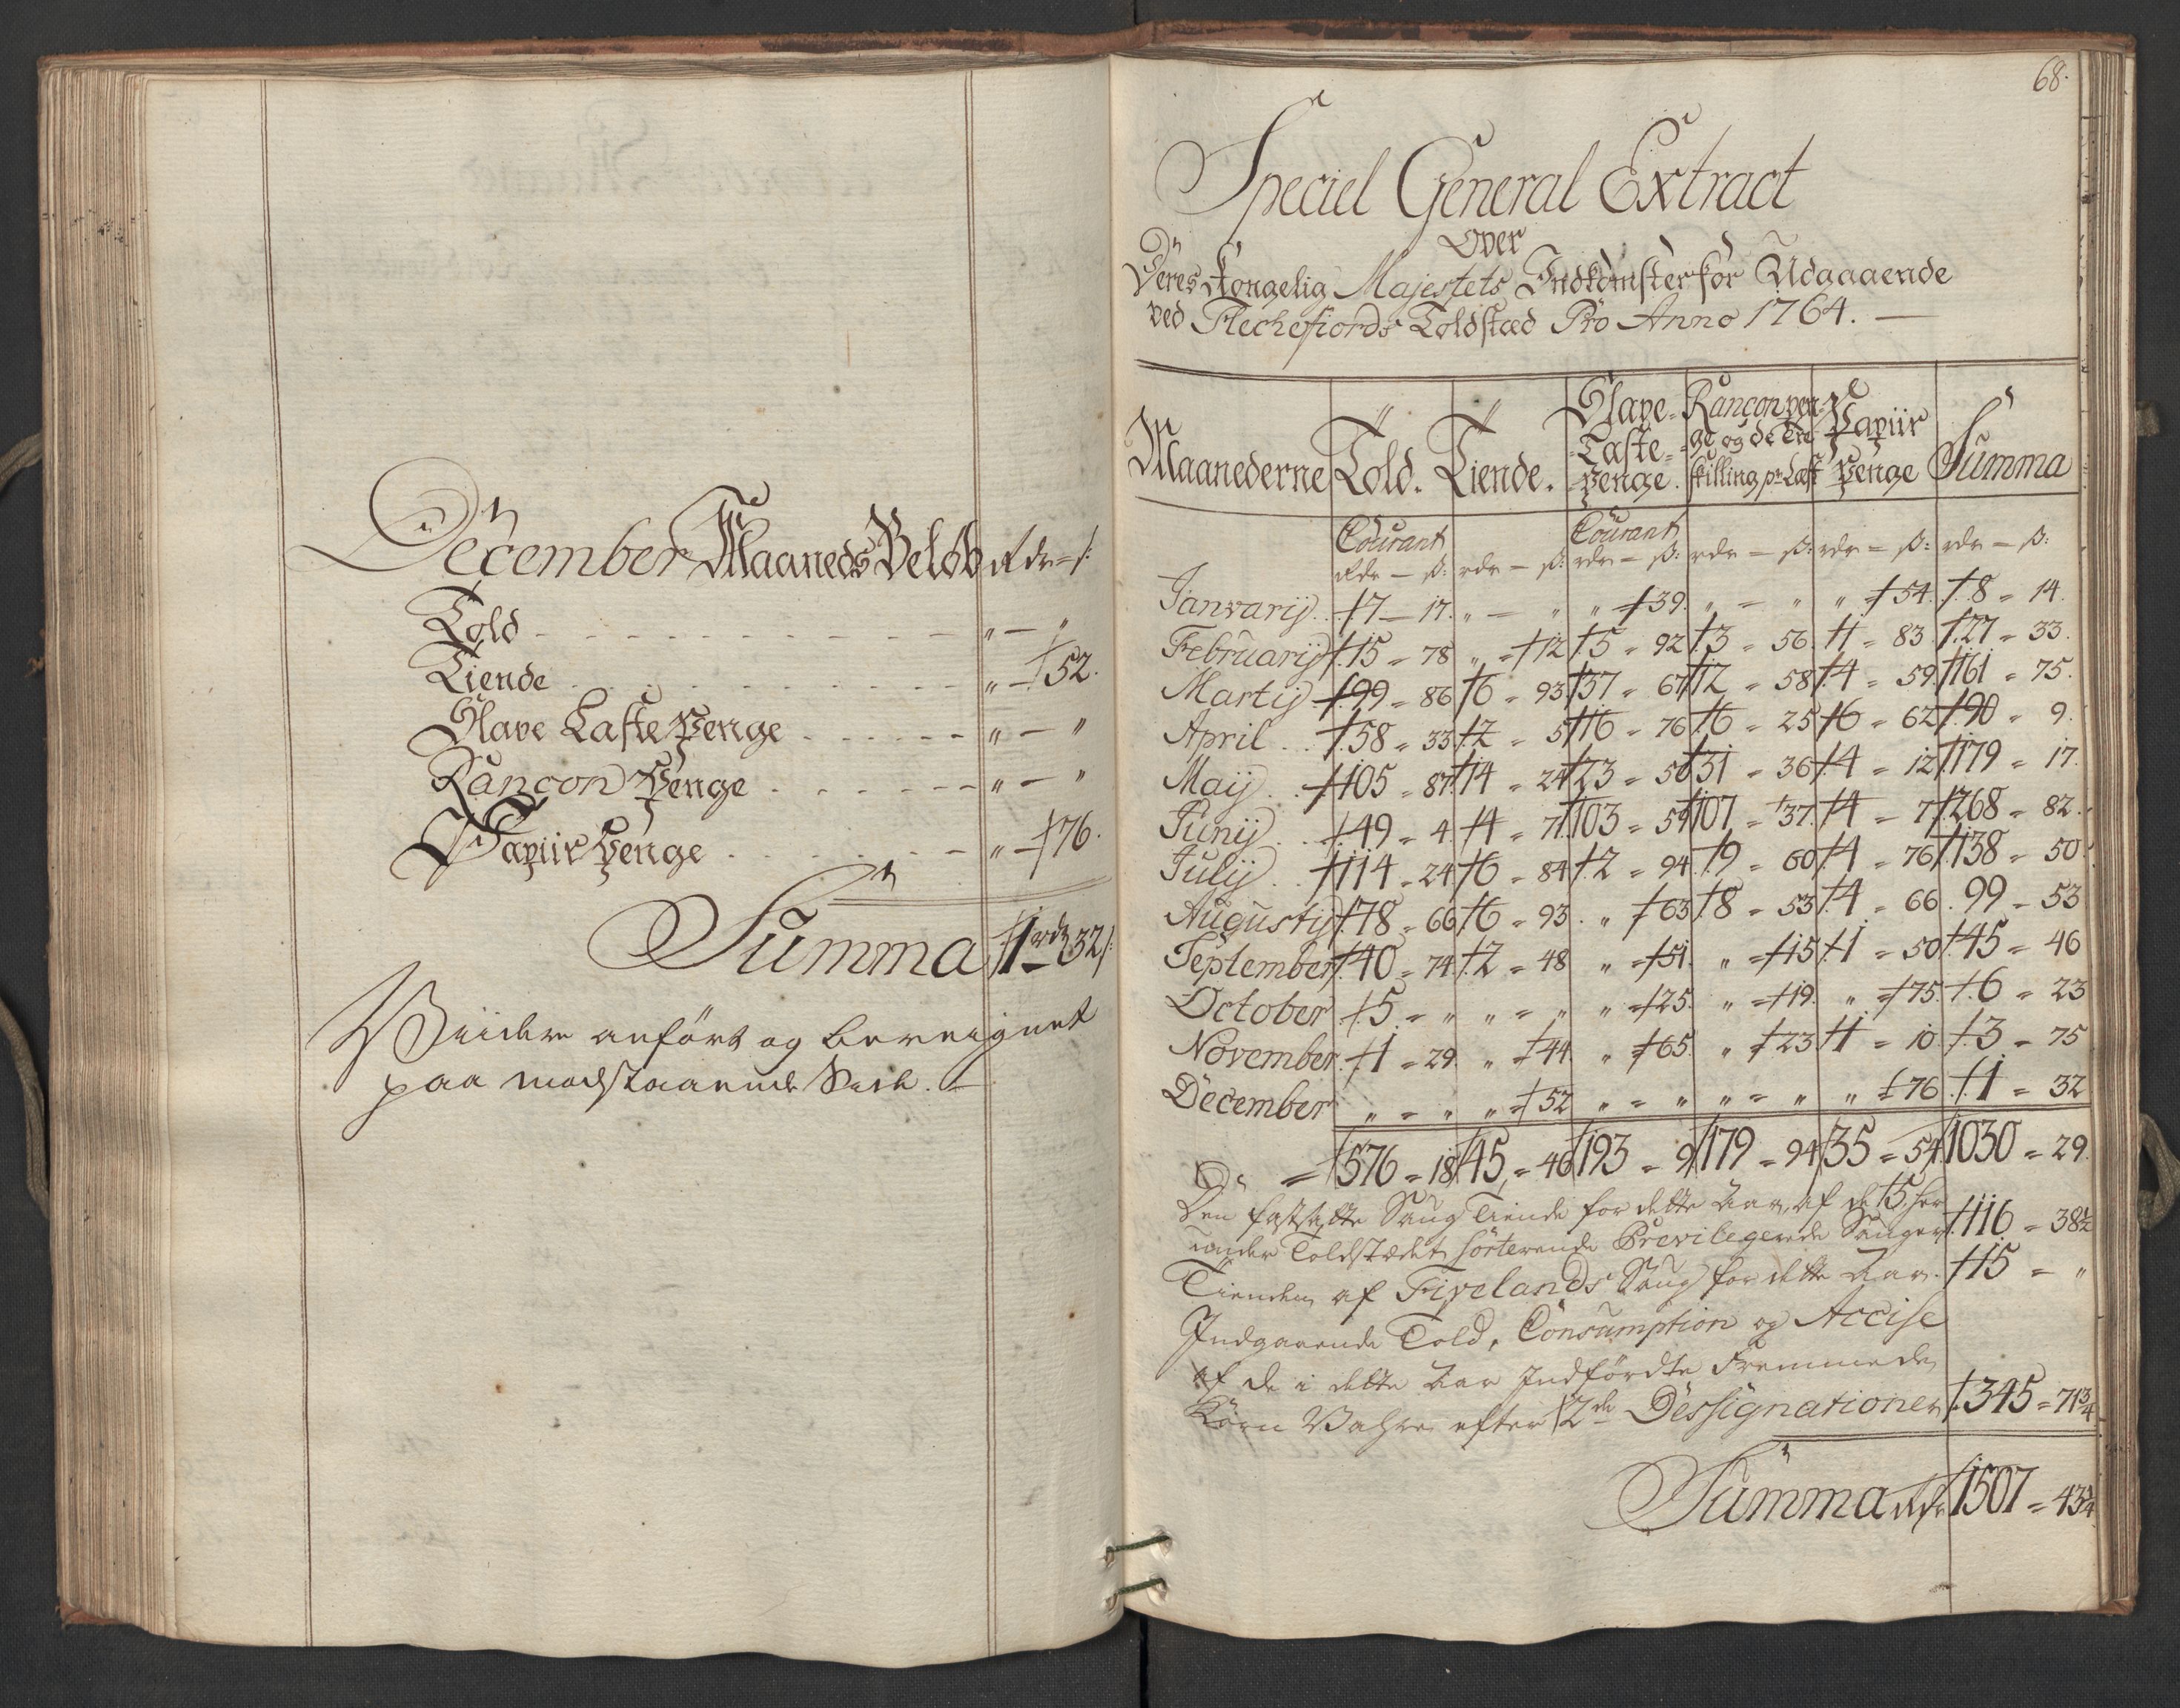 December Maaneds Beløb rdr = ß:
Told - - - - - - - - - - " — "
Tiende . . . . . . . . . " — 52.
Slave Laste Penge . . . - - - " — "
Rancon Penge . - - - - - " — "
Papiir Penge . . . . . - " — 76.
Summa 1 rdr 32 ß:
Viidere anført og bereignet
paa modstaaende Side. —
68.
Speciel General Extract
Over
Deres Kongelig Majestets Indkomster for Udgaaende
ved Flechefiords Toldstæd Pro Anno 1764. —
Maanederne | Told. | Tiende. | Slave-Laste-Penge. | Rancon penge og de Tre skilling pr Læst | Papiir Penge | Summa
Courant rdr — ß: | rdr — ß: | Courant rdr — ß: | rdr — ß: | rdr = ß: | rdr — ß:
Janvarij . . 7 — 17. | " — " | " = 39. | " — " | " = 54. | 8 = 14.
Februarij 15 = 78 | " = 12 | 5 = 92 | 3 = 56. | 1 = 83. | 27 = 33.
Martij 99 = 86 | 6 = 93 | 37 = 67 | 12 = 58 | 4 = 59. | 161 = 75.
April . . 58 = 33 | 2 = 5 | 16 = 76 | 6 = 25 | 6 = 62 | 90 = 9.
Maij . . 105 = 87 | 14 = 24 | 23 = 50 | 31 = 36 | 4 = 12 | 179 = 17.
Junij . . 49 = 4. | 4 = 71. | 103 = 59 | 107 = 37. | 4 = 7 | 268 = 82.
Julij . . 114 = 24 | 6 = 84 | 2 = 94. | 9 = 60 | 4 = 76 | 138 = 50.
Augustij 78 = 66 | 6 = 93. | " = 63 | 8 = 53 | 4 = 66. | 99 = 53
September 40 = 74 | 2 = 48 | " = 51. | " = 15 | 1 = 50 | 45 = 46
October . 5 = " | " = " | " = 25. | " = 19. | " = 75. | 6 = 23
November. 1 = 29. | " = 44. | " = 65. | " = 23 | 1 = 10 | 3 = 75
December " = " | " = 52 | " = " | " = " | " = 76. | 1 = 32
= 576 = 18 | 45 = 46 | 193 = 9 | 179 = 94 | 35 = 54 | 1030 = 29.
Den fastsatte Saug Tiende for dette Aar, af de 15 her
under Toldstædet sorterende Previlegerede Sauger. 116 = 38½
Tienden af Fivelands Saug for dette Aar. 15 = "
Indgaaende Told, Consumption og Accise
af de i dette Aar Indførdte Fremmede
Korn Vahre efter 2de Dessignationer 345 = 71¾
Summa rdr 1507 = 43¼